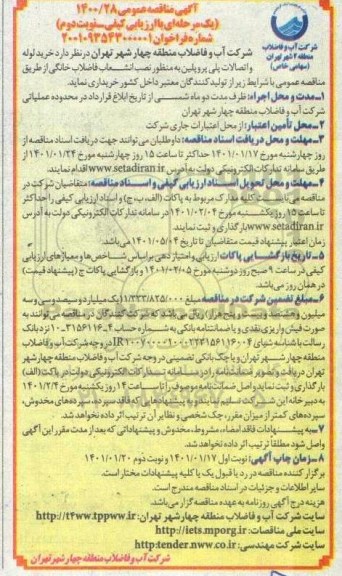 آگهی مناقصه عمومی ۱۴۰۰/۲۸
(یک مرحله‌ای با ارزیابی کیفی-نوبت دوم)
شماره فراخوان ۲۰۰۱۰۹۳۵۴۳۰۰۰۰۰۱
شرکت آب و فاضلاب
منطقه ۴ شهر تهران
(سهامی خاص)
شرکت آب و فاضلاب منطقه چهار شهر تهران در نظر دارد خرید لوله
و اتصالات پلی پروپلین به منظور نصب انشعاب فاضلاب خانگی از طریق
مناقصه عمومی با شرایط زیر از تولید کنندگان معتبر داخل کشور خریداری نماید.
۱-مدت و محل اجراء: ظرف مدت دو ماه شمسی از تاریخ ابلاغ قرارداد در محدوده عملیاتی
شرکت آب و فاضلاب منطقه چهار شهر تهران
۲-محل تأمین اعتبار: از محل اعتبارات جاری شرکت
۳-مهلت و محل دریافت اسناد مناقصه: داوطلبان می‌توانند جهت دریافت اسناد مناقصه از
روز چهارشنبه مورخ ۱۴۰۱/۰۱/۱۷ حداکثر تا ساعت ۱۵ روز چهارشنبه مورخ ۱۴۰۱/۰۱/۲۴ از
طریق سامانه تدارکات الکترونیکی دولت به آدرس www.setadiran.ir اقدام نمایند.
۴-مهلت و محل تحویل اسناد ارزیابی کیفی و اسناد مناقصه: متقاضیان شرکت در
مناقصه می‌بایست کلیه مدارک مربوط به پاکات (الف، ب، ج) و اسناد ارزیابی کیفی را حداکثر
تا ساعت ۱۵ روز یکشنبه مورخ ۱۴۰۱/۰۲/۰۴ در سامانه تدارکات الکترونیکی دولت به آدرس
www.setadiran.ir بارگذاری و ثبت نمایند.
زمان اعتبار پیشنهاد قیمت متقاضیان تا تاریخ ۱۴۰۱/۰۵/۰۴ می‌باشد.
۵-تاریخ بازگشایی پاکات ارزیابی و امتیازدهی براساس شاخص‌ها و معیارهای ارزیابی
کیفی در ساعت ۹ صبح روز دوشنبه مورخ ۱۴۰۱/۰۲/۰۵ و بازگشایی پاکات ج (پیشنهاد قیمت)
در همان روز می‌باشد.
۶-مبلغ تضمین شرکت در مناقصه مبلغ ۱/۱۳۳/۸۲۵/۰۰۰ یک میلیارد و سیصد و سی و سه
میلیون و هشتصد و بیست و پنج هزار ریال می‌باشد که شرکت کنندگان در مناقصه می‌توانند به
صورت فیش واریزی نقدی و یا ضمانتنامه بانکی به شماره حساب
منطقه چهار شهر تهران و یا چک بانکی تضمینی در وجه شرکت آب و فاضلاب منطقه چهار شهر
تهران دریافت و تصویر ضمانتنامه را در سامانه تدارکات الکترونیکی دولت در پاکت (الف)
بارگذاری و ثبت نماید و اصل ضمانت‌نامه موصوف را تا ساعت ۱۴ روز یکشنبه مورخ ۱۴۰۱/۲/۴
به دبیرخانه این شرکت تسلیم نمایند و به پیشنهادهایی که فاقد سپرده، سپرده‌های مخدوش،
سپرده‌های کمتر از میزان مقرر، چک شخصی و نظایر آن ترتیب اثر داده نخواهد شد.
۷-به پیشنهادات فاقد امضاء، مشروط، مخدوش و پیشنهاداتی که بعد از مدت مقرر این آگهی
واصل شود مطلقاً ترتیب اثر داده نخواهد شد.
۸-زمان چاپ آگهی: نوبت اول ۱۴۰۱/۰۱/۱۷ و نوبت دوم ۱۴۰۱/۰۱/۲۰
برگزار کننده مناقصه در رد یا قبول یک یا کلیه پیشنهادات مختار است.
سایر اطلاعات و جزئیات در اسناد مناقصه مندرج است.
هزینه درج آگهی روزنامه به عهده مناقصه گزار می‌باشد.
سایت شرکت آب و فاضلاب منطقه چهار شهر تهران: http://t4ww.tppww.ir
سایت ملی مناقصات: http://iets.mporg.ir
سایت شرکت مهندسی: http:tender.nww.co.ir
شرکت آب و فاضلاب منطقه چهار شهر تهران